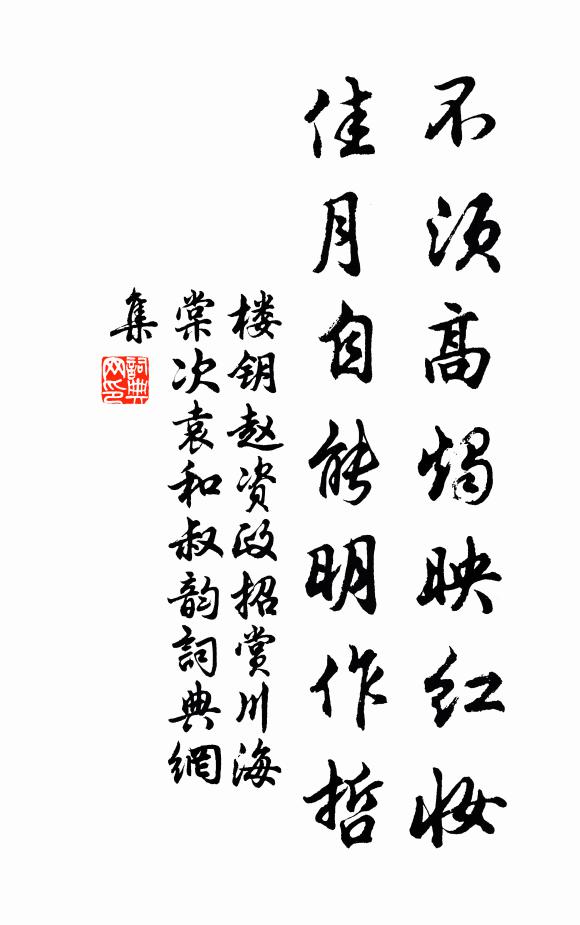 不须高烛映红妆
佳月自能明作哲
楼钥赵资政招赏川海
棠次袁和叔韵词典網
集
詞典網印